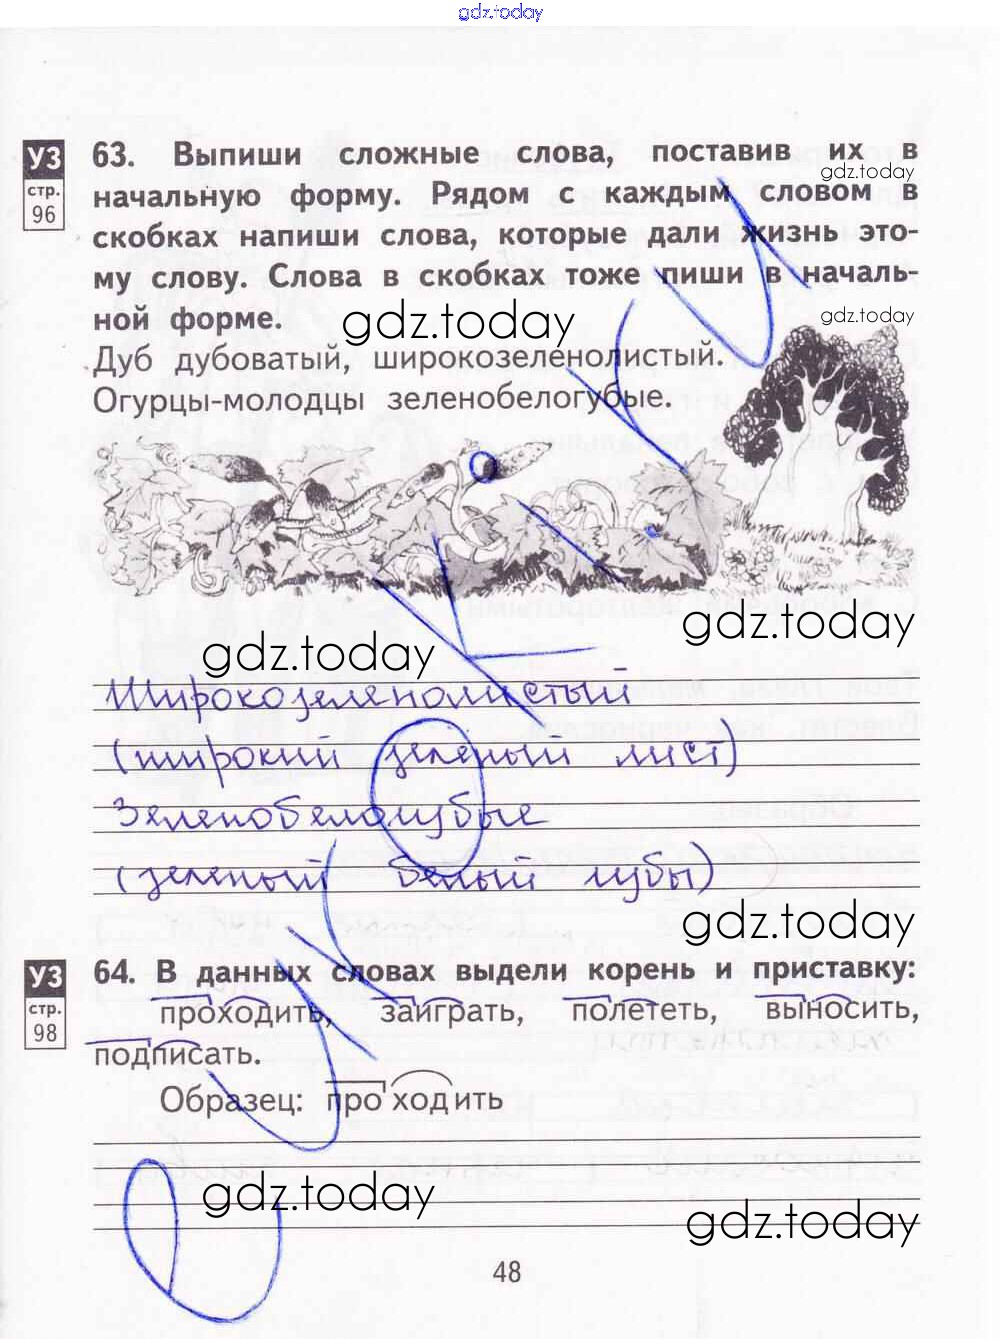 gdz.today
УЗ
стр.
96
63. Выпиши сложные слова, поставив их в
gdz.today
начальную форму. Рядом с каждым словом в
скобках напиши слова, которые дали жизнь это-
му слову. Слова в скобках тоже пиши в началь-
ной форме.
gdz.today
gdz.today
Дуб дубоватый, широкозеленолистый.
Огурцы-молодцы зеленобелогубые.
gdz.today
gdz.today
Широкозеленолистый
(широкий зеленый лист)
Зеленобелогубые
(зеленый белый губы)
gdz.today
УЗ
стр.
98
64. В данных словах выдели корень и приставку:
проходить, заиграть, полететь, выносить,
подписать.
Образец: проходить
gdz.today
gdz.today
48